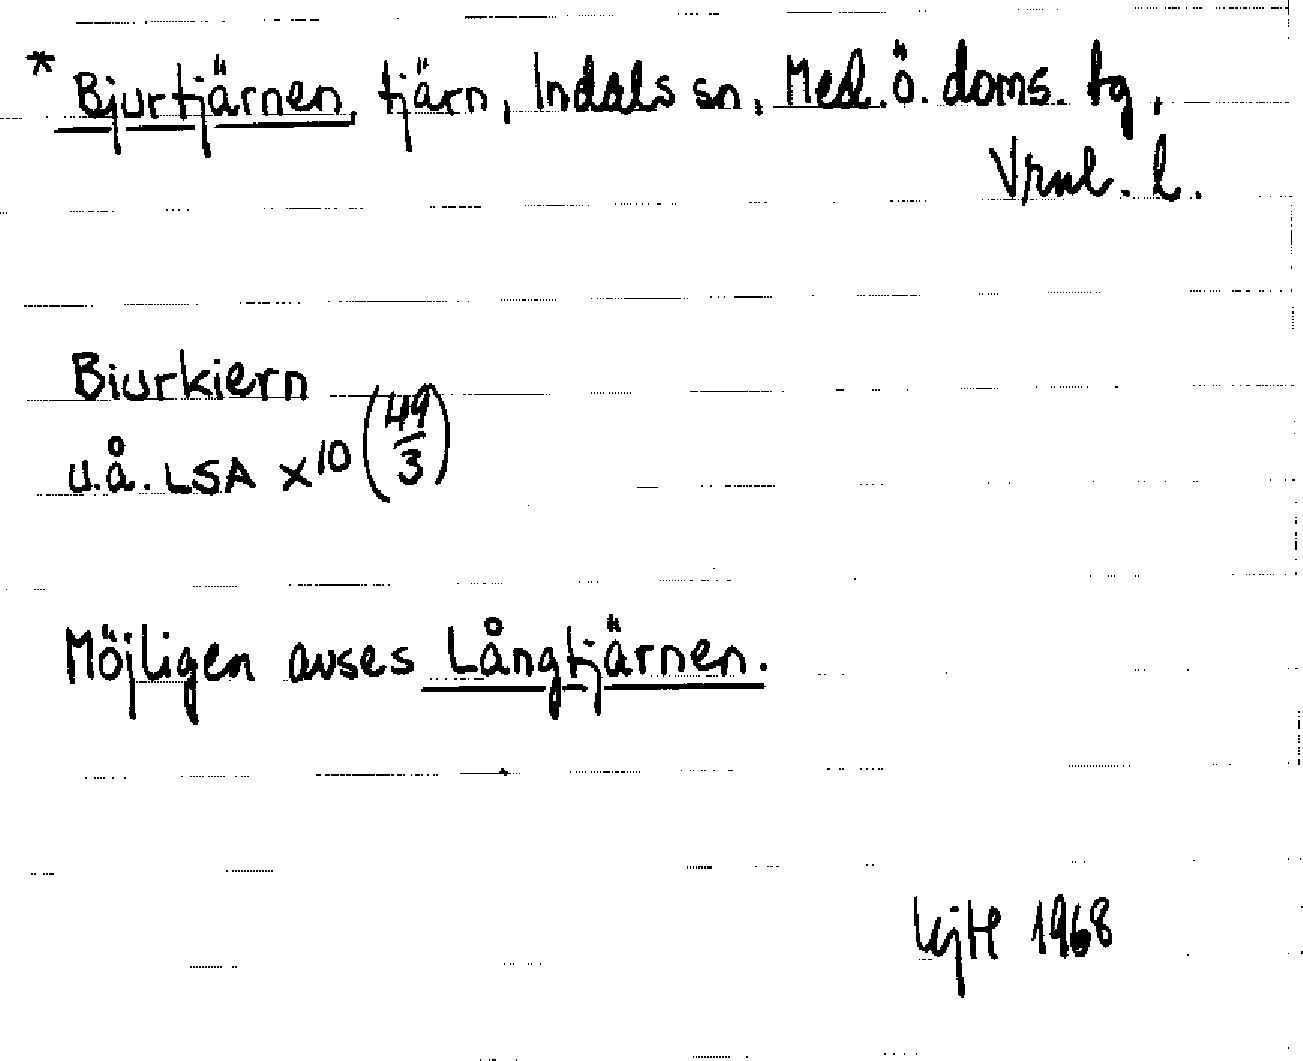 * Bjurtjärnen, tjärn, Indals sn, Med. ö. doms. tg,
Vrnl. l.
Biurkiern
u.å. LSA X10 (49/3)
Möjligen avses Långtjärnen.
1968